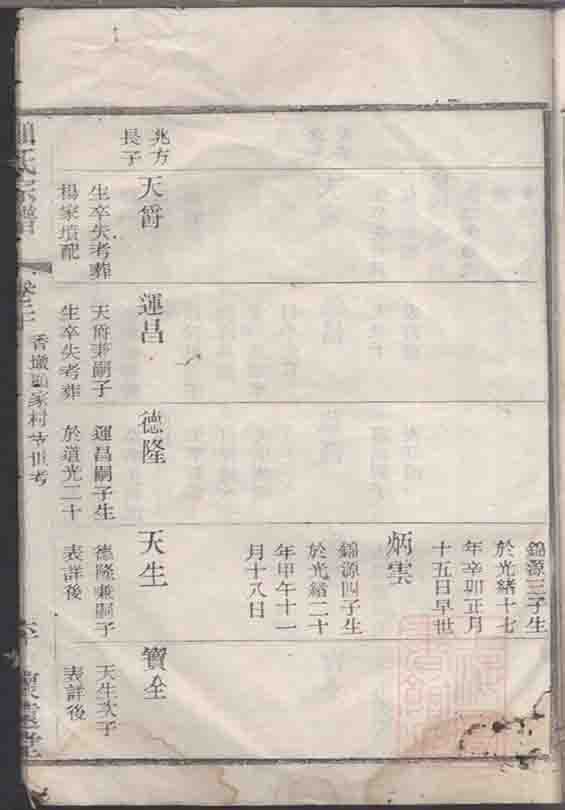 兆方
長子
天爵
生卒失考葬
楊家墳配
運昌
天爵兼嗣子
生卒失考葬
德隆
運昌嗣子生
於道光二十
錦源三子生
於光緒十七
年辛卯正月
十五日早世
炳雲
錦源四子生
於光緒二十
年甲午十一
月十八日
天生
德隆兼嗣子
表詳後
寶全
天生次子
表詳後
氏宗譜
香墩顧家村 世考